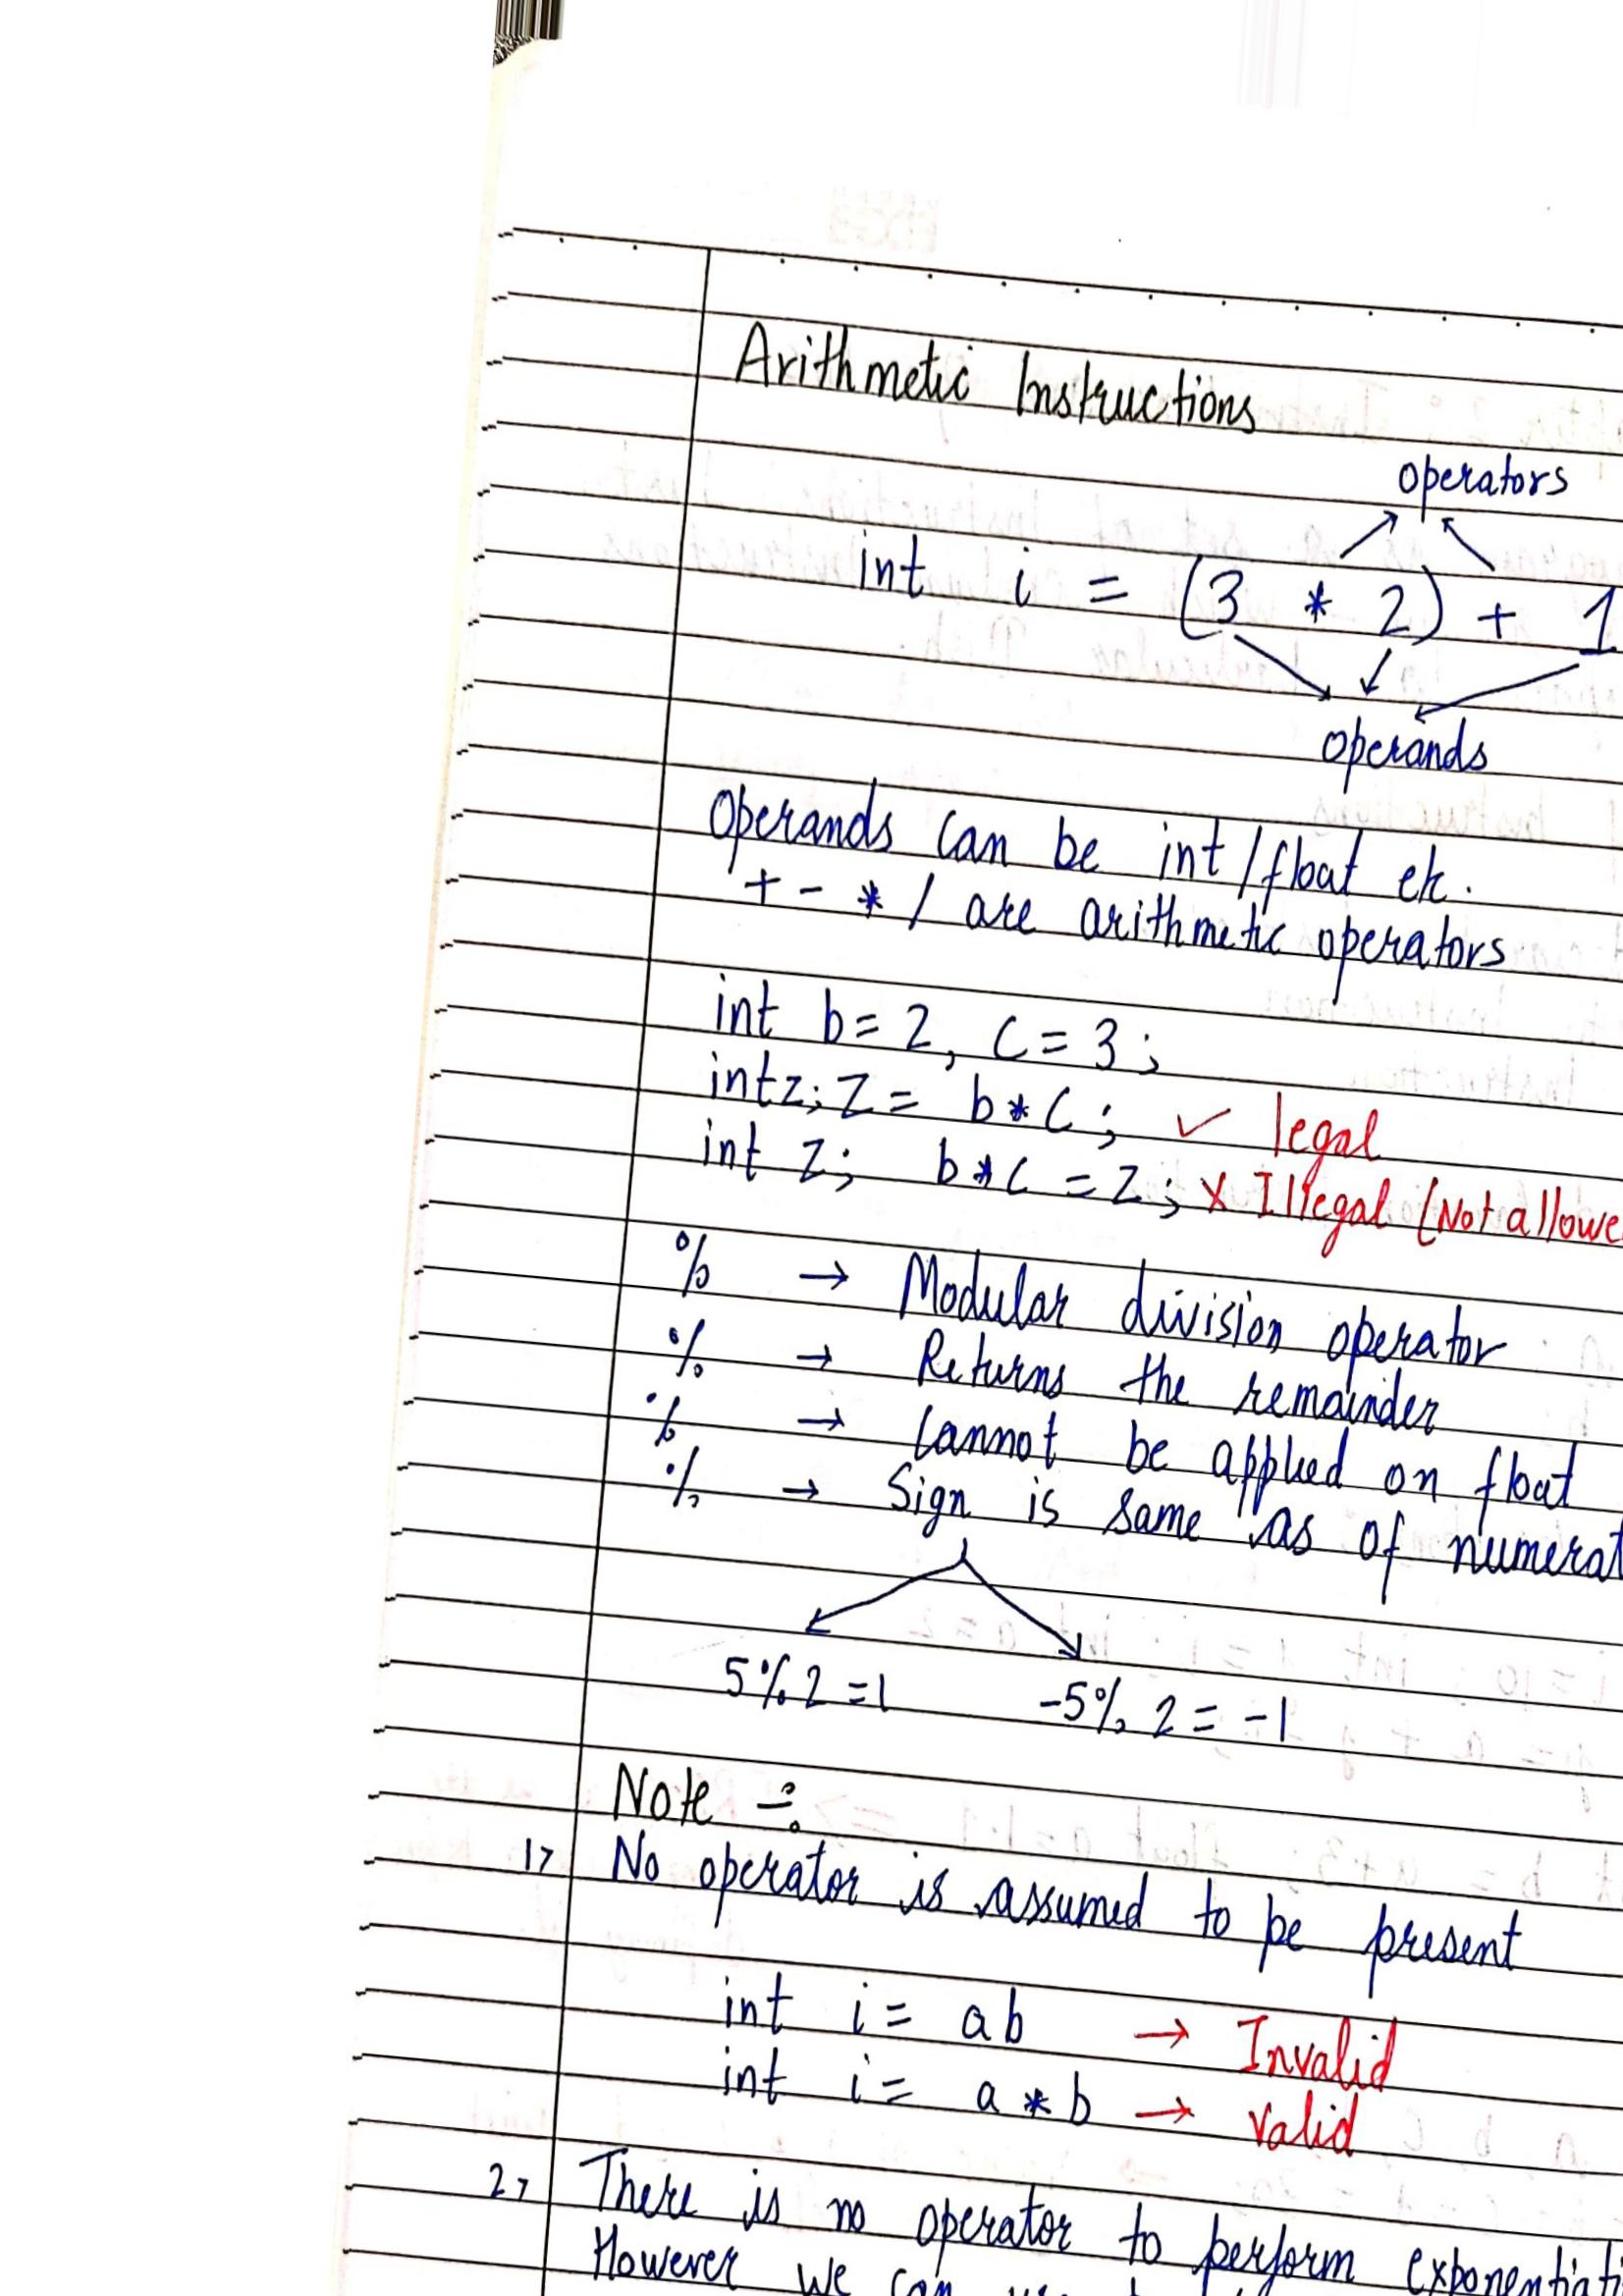 Arithmetic Instructions
operators
int i = (3 * 2) + 1
operands
Operands can be int/float etc.
+ - * / are arithmetic operators
int b = 2, c = 3;
int z; z = b*c; ✓ legal
int z; b*c = z; x Illegal (Not allowe
% → Modular division operator
% → Returns the remainder
% → Cannot be applied on float
% → Sign is same as of numerat
5%2 = 1 -5%2 = -1
Note :-
1> No operator is assumed to be present
int i = ab → Invalid
int i = a * b → valid
2> There is no operator to perform exponentiati
However we can